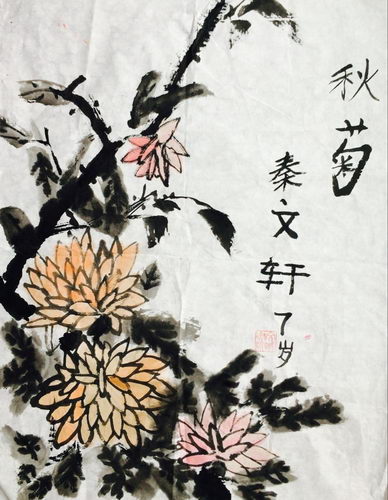 秋菊
秦文轩7岁